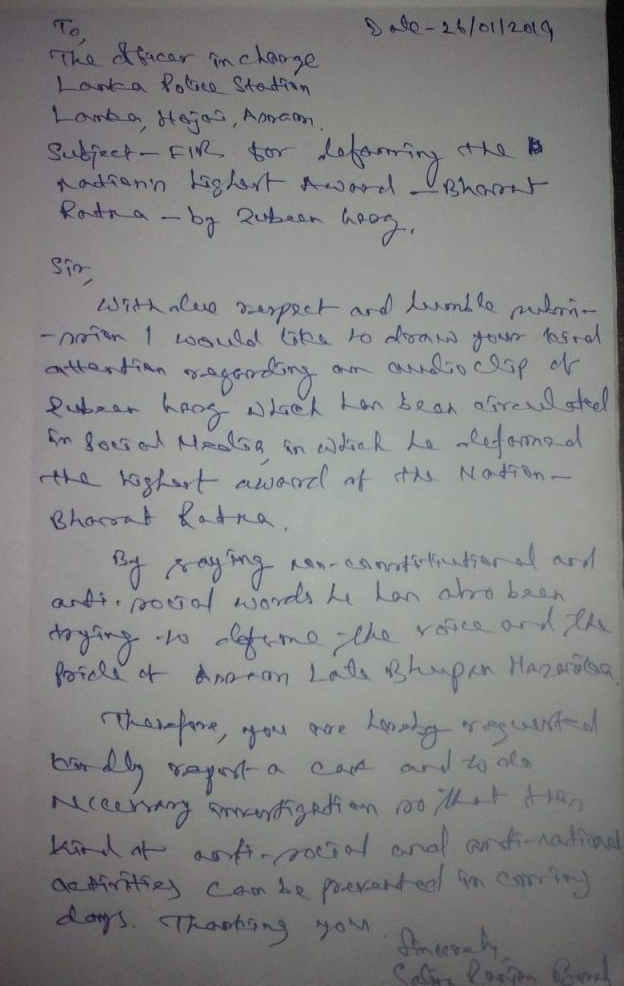 To,
Date-26/01/2019
The Officer in charge
Lanka Police Station
Lanka, Hojai, Assam.
Subject- FIR for defaming the
Nation's highest Award - Bharat
Ratna - by Zubeen Garg.
Sir,
With due respect and humble submi-
-ssion I would like to draw your kind
attention regarding an audio clip of
Zubeen Garg which has been circulated
in Social Media, in which he defamed
the highest award of the Nation-
Bharat Ratna.
By saying non-constitutional and
anti-social words he has also been
trying to defame the voice and the
pride of Assam Late Bhupen Hazarika.
Therefore, you are hereby requested
kindly report a case and to do
necessary investigation so that this
kind of anti-social and anti-national
activities can be prevented in coming
days. Thanking you.
Sincerely,
Ranjan Borah